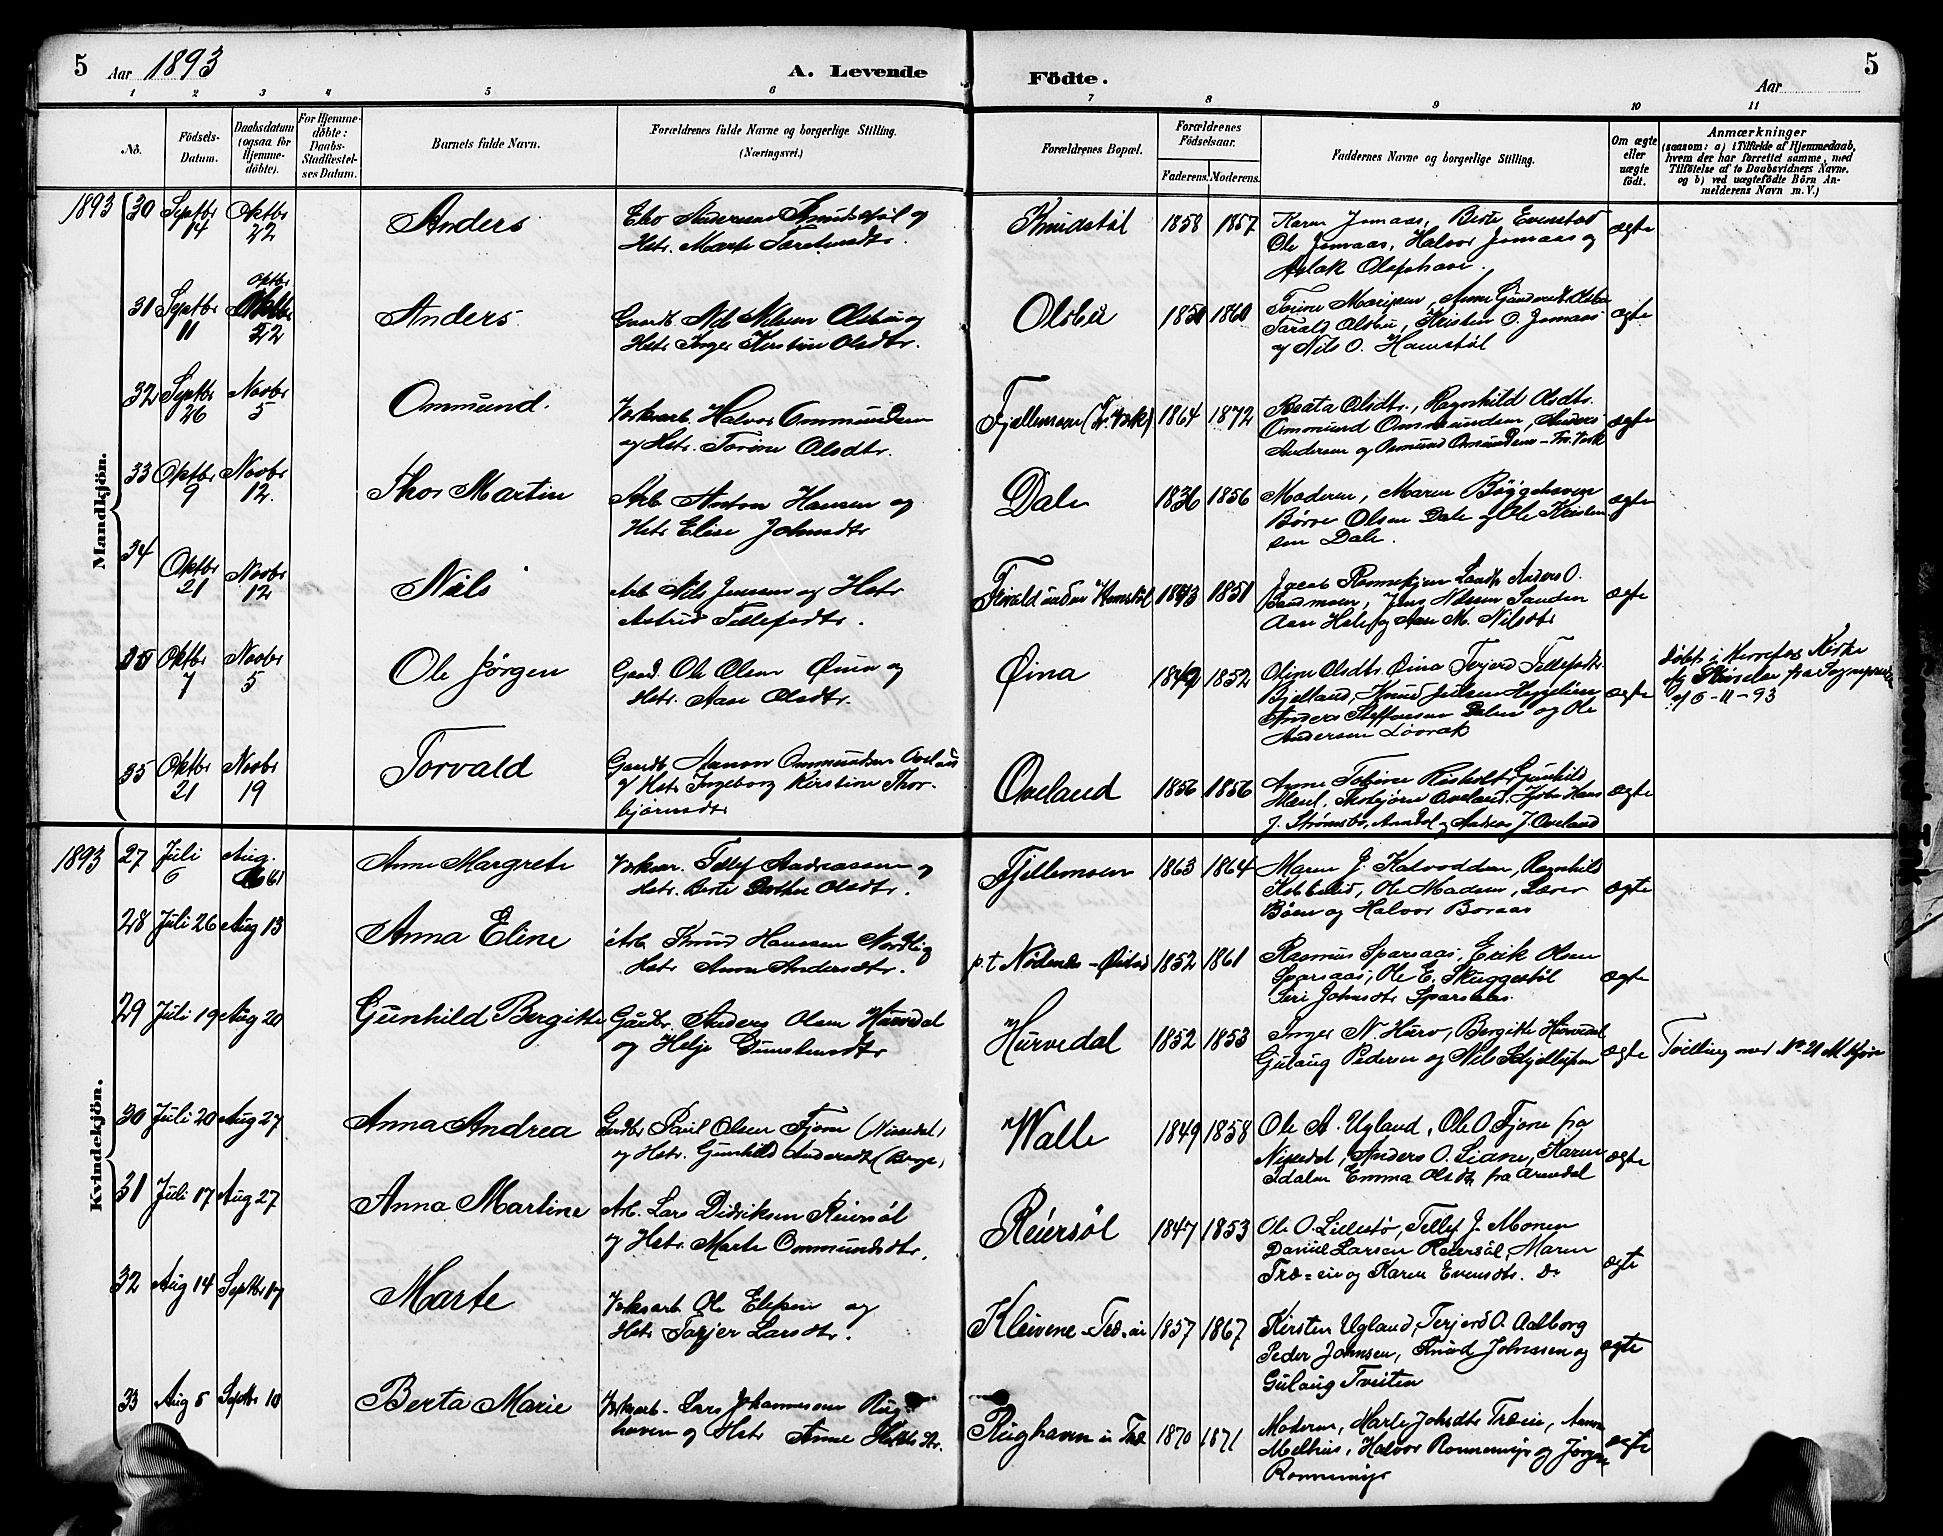 5 Aar 1893 A. Levende Födte. Aar 5
1 2 3 4 5 6 7 8 9 10 11
No. Födsels-Datum. Daabsdatum (ogsaa for Hjemme-døbte). For Hjemme-døbte: Daabs-Stadfæstel-ses Datum. Barnets fulde Navn. Forældrenes fulde Navne og borgerlige Stilling. (Næringsvei.) Forældrenes Bopæl. Forældrenes Födselsaar. Faderens. Moderens. Faddernes Navne og borgerlige Stilling. Om ægte eller uægte født. Anmærkninger
(saasom: a) i Tilfælde af Hjemmedaab,
hvem der har forrettet samme, med
Tilføielse af to Daabsvidners Navne.
og b) ved uægtefødte Börn An-
melderens Navn m. V.)
Mandkjön.
1893 30 Septbr 14 Oktbr 22 Anders
Andersen Knudstøl og
Hstr. Marte
Knudstøl 1858 1857
Karen Jomaas, Berte Evenstad
Ole Jomaas, Halvor Jomaas og
Aslak
ægte
31 Septbr 11 Oktbr 22 Anders
Gaardb. Nils Nilsen Olsbu og
Hstr. Inger Kirstine Olsdtr.
Olsbu 1850 1860
Tarald Olsbu, Kristen O. Jomaas
og Nils O. Hamstøl
ægte
32 Septbr 26 Novbr 5 Ommund.
Vrksarb. Halvor Ommundsen
og Hstr. Torine Olsdtr.
Fjellemoen 1864 1872
Beata Olsdtr., Ragnhild Olsdtr.
Ommund Ommundsen, Anders
Andersen og Osmund Omundsen
ægte
33 Oktbr 9 Novbr 12. Thor Martin
Arb Anton Hansen og
Hstr Elise Johnsdtr
Dale 1836 1856
Moderen, Maren Bøggehaven
Børre Olsen Dale og Ole Kristen
sen Dale.
ægte
34 Oktbr 21 Novbr 12 Nils
Arb Nils Jensen og Hstr
Astrid Tellefsdtr.
under Hamstøl 1843 1851
Jacob Anders O.
Sandmoen, Jens Nilsen Sanden
Aase og Aase M. Nilsdtr
ægte
35 Oktbr 7 Novbr 5 Ole Jørgen
Gaard. Ole Olsen Øina og
Hstr. Aase Olsdtr.
Øina 1849 1852
Oline Olsdtr. Øina Terjer Tellefsdtr
Bjelland, Knud Jensen
Anders Steffensen Dalen og Ole
Andersen Løvrak
ægte
døbt i Herrefos Kirke
6-11-93
35 Oktbr 21 Novbr 19 Torvald
Gaardb. Aanon Ommundsen Oveland
og Hstr Ingeborg Kirstine Thor-
bjørnsdtr
Oveland 1856 1856
Anne Gunhild
Thobjørn Oveland,
J. Strømsbo, Arendal og Andreas J. Oveland
ægte
Kvindekjön.
1893 27 Juli 6 Aug. 6 Anne Margrete
Vrksar. Tellef Andreassen og
Hstr. Berte Olsdtr.
Fjellemoen 1863 1864
Maren J. Ragnhild
Ole Madsen, Lærer
Bøen og Halvor Boraas
ægte
28 Juli 26 Aug 13 Anna Eline
Arb. Knud Hansen Nordlig
Hstr Anne Andersdtr.
p.t Nødenes - Øiestad 1852 1861
Rasmus Sparsaas, Erik Olsen
Sparsaas, Ole E. Skuggestøl
Siri Johnsdtr Sparsaas
ægte
29 Juli 19 Aug 20 Gunhild Bergitte
Gaardbr. Anders Olsen Hurvedal
og Helje Gunstensdtr
Hurvedal 1852 1853
Inger N. Hurv, Bergitte Hurvedal
Gulaug Pedersen og Nils
ægte
Tvilling med No 21 M.kjøn
30 Juli 20 Aug 27 Anna Andrea
Gaardbr Paul Olsen Fjone (Nissedal)
og Hstr. Gunhild Andersdtr (Berge)
Walle 1849 1858
Ole A. Ugland, Ole O Fjone fra
Nissedal, Anders O. Liane, Karen
Idalen Emma Olsdtr fra Arendal
ægte
31 Juli 17 Aug 27 Anna Martine
Arb. Lars Didriksen Reiersøl
og Hstr. Marte Ommundsdtr.
Reiersøl 1847 1853
Ole O. Lillestø, Tellef J. Monen
Daniel Larsen Reiersøl, Maren
Træ=ie og Karen Evensdtr. Do
ægte
32 Aug 14 Septbr 17 Marte
Vrksarb Ole Elefsen og
Hstr Tarjer Larsdtr.
Kleivene - Træ-ei 1857 1867
Kirsten Ugland, Terjer O. Aalborg
Peder Johnsen, Knud Johnsen og
Gulaug Tveiten
ægte
33 Aug 5 Septbr 10 Berta Marie
Vrksarb. Lars Johannesen Rug-
haven og Hstr Anne
Rughaven u Træ 1870 1871
Moderen, Marte Johsdtr Træie, Anne
Melhus, Halvor Ronnemyr og Jørgen
Ronnemyr
ægte